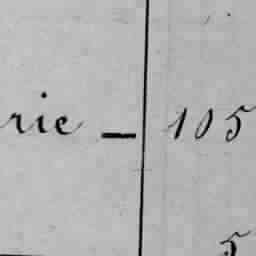 rie – 105
5